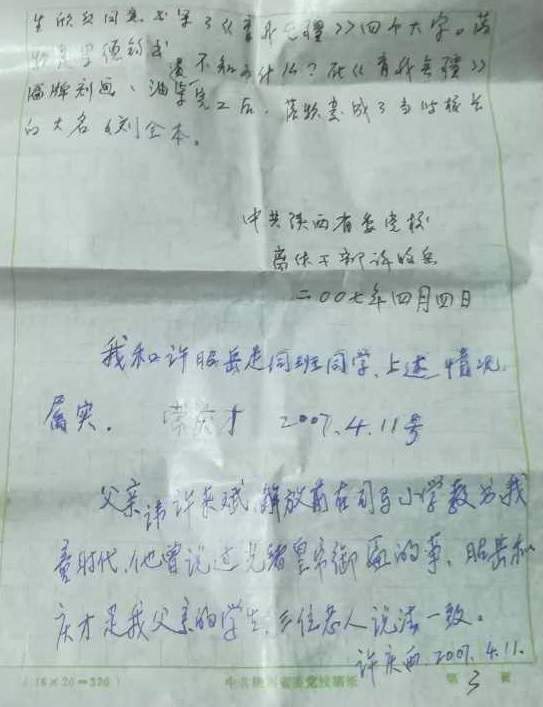 生欣然同意,书写了《育我无疆》四个大字。落
款是
不知为什么?在《育我无疆》
匾牌刻画、油漆完工后,落款变成了当时校长
的大名《刘全本。
中共陕西省委党校
离休干部许昭岳
二00七年四月四日
我和许昭岳是同班同学,上述情况
属实。 常庆才 2007.4.11号
父亲讳许来斌,解放前在司马小学教书。我
童时代,他曾说过光绪皇帝御匾的事,昭岳和
庆才是我父亲的学生,三位老人说法一致。
许庆西 2007.4.11.
(16×20=320) 中共陕西省委党校稿纸 第3页